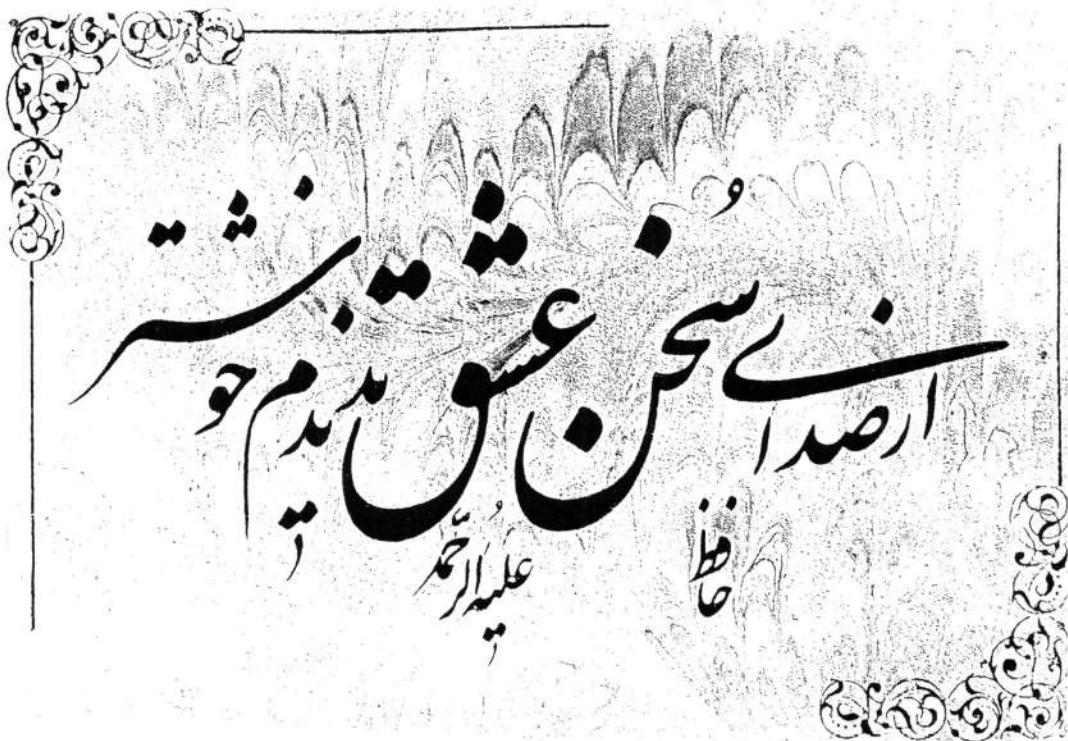 از صدای سخن عشق ندیدم خوشتر
حافظ علیه الرحمه